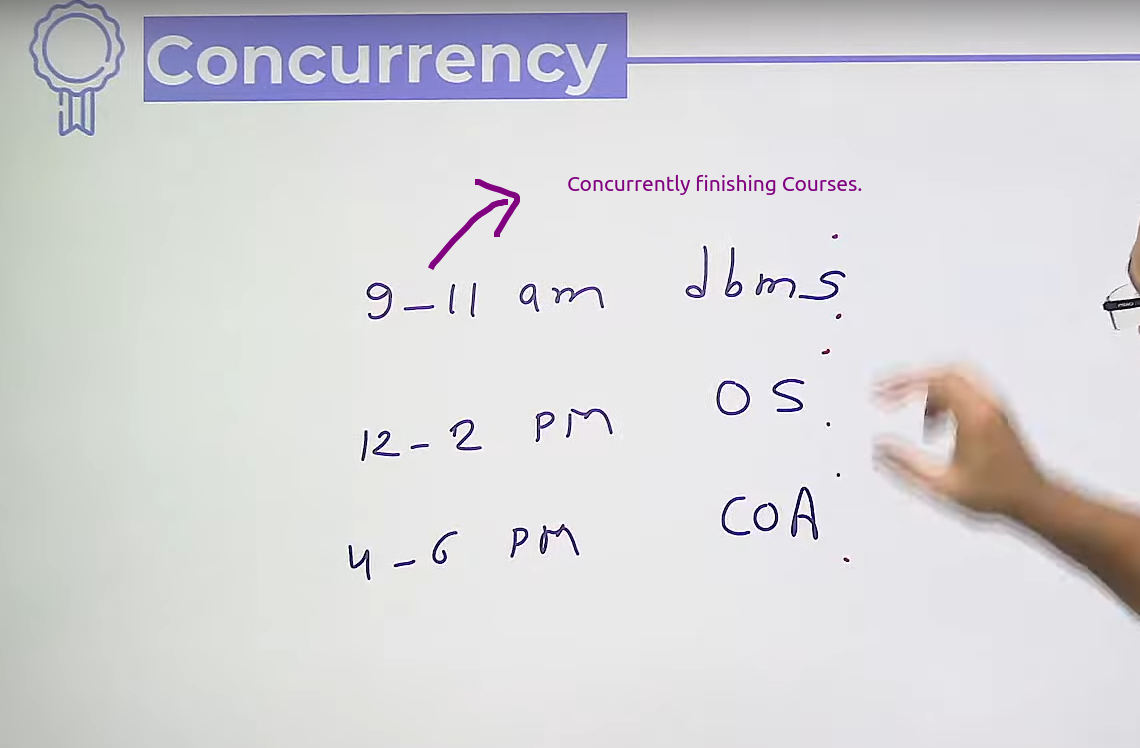 Concurrency
Concurrently finishing Courses.
9-11 am dbms
12-2 PM OS
4-6 PM COA